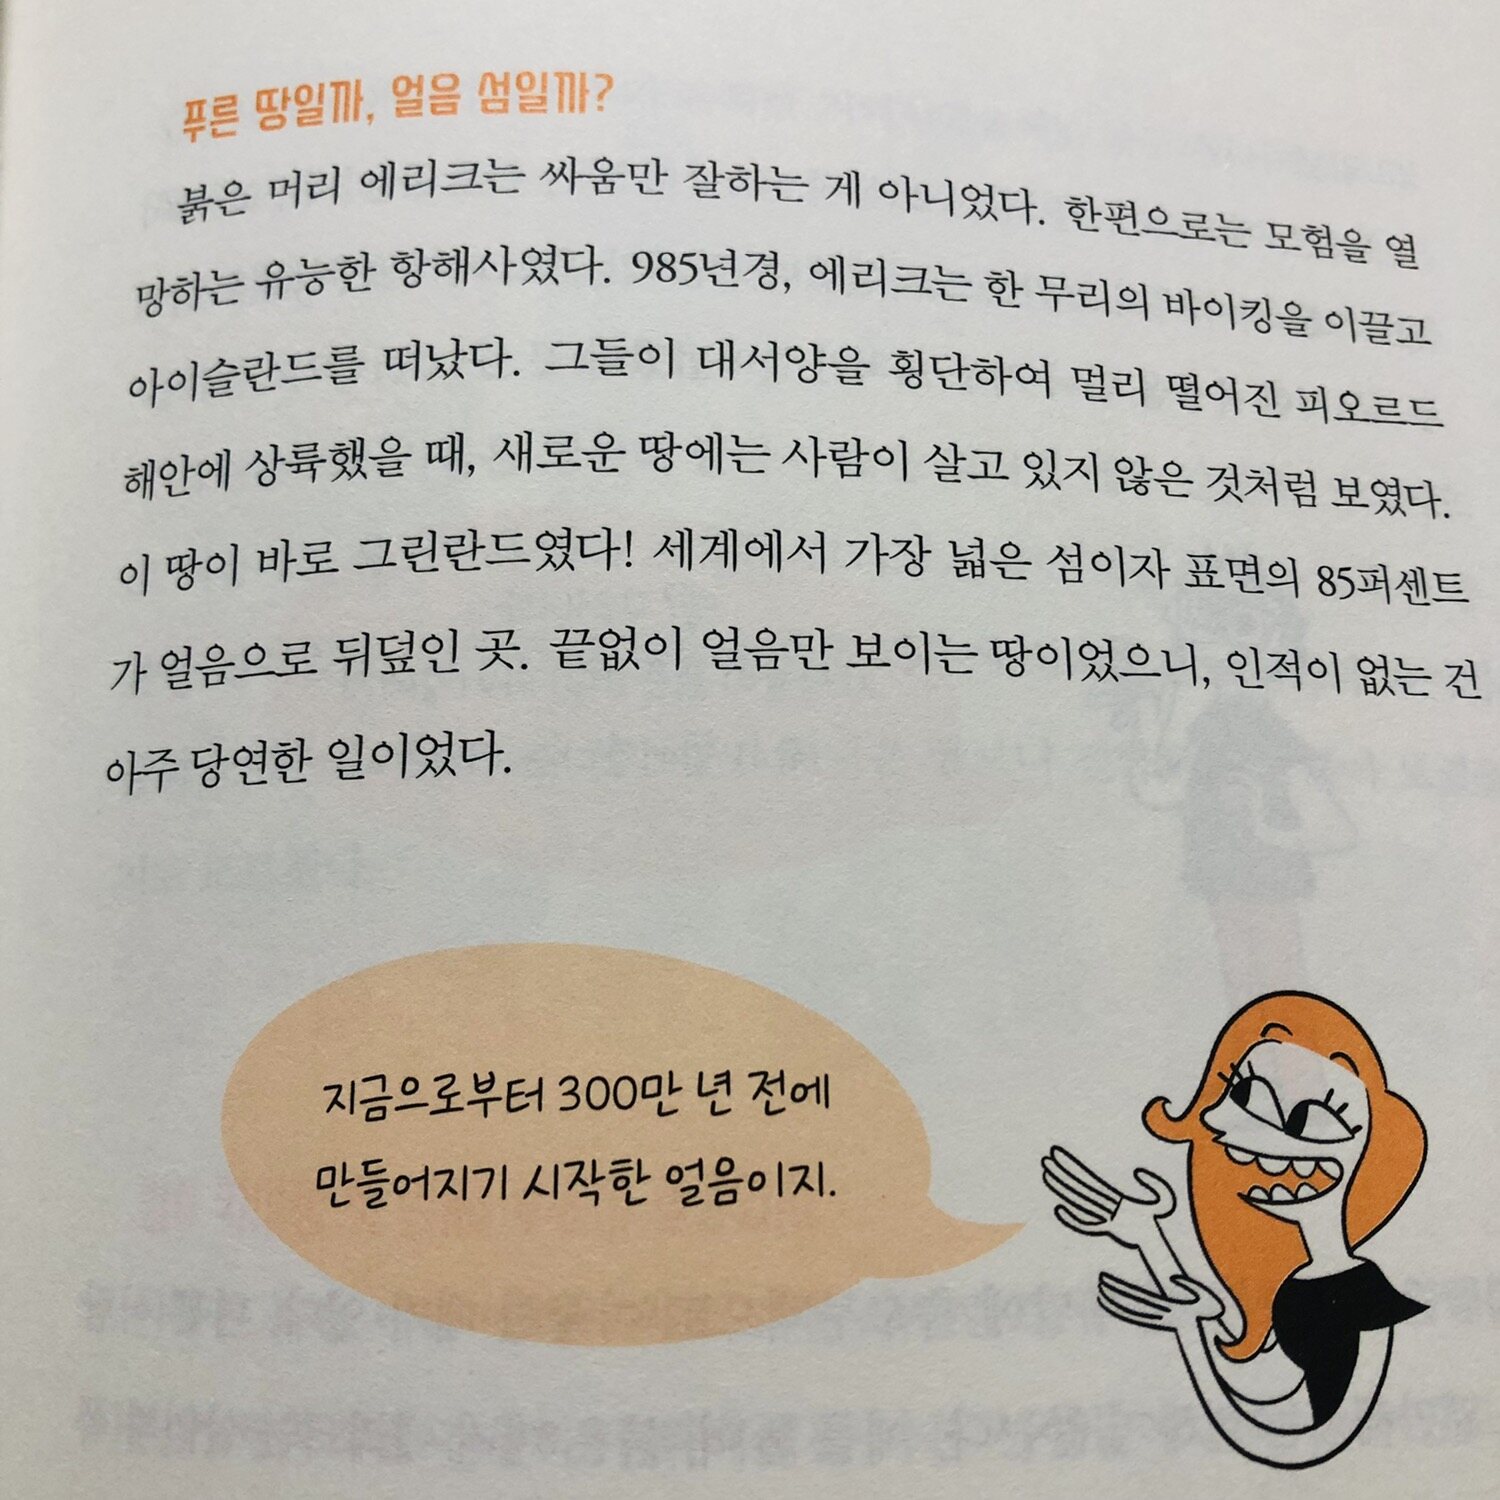 푸른 땅일까, 얼음 섬일까?
붉은 머리 에리크는 싸움만 잘하는 게 아니었다. 한편으로는 모험을 열
망하는 유능한 항해사였다. 985년경, 에리크는 한 무리의 바이킹을 이끌고
아이슬란드를 떠났다. 그들이 대서양을 횡단하여 멀리 떨어진 피오르드
해안에 상륙했을 때, 새로운 땅에는 사람이 살고 있지 않은 것처럼 보였다.
이 땅이 바로 그린란드였다! 세계에서 가장 넓은 섬이자 표면의 85퍼센트
가 얼음으로 뒤덮인 곳. 끝없이 얼음만 보이는 땅이었으니, 인적이 없는 건
아주 당연한 일이었다.
지금으로부터 300만 년 전에
만들어지기 시작한 얼음이지.